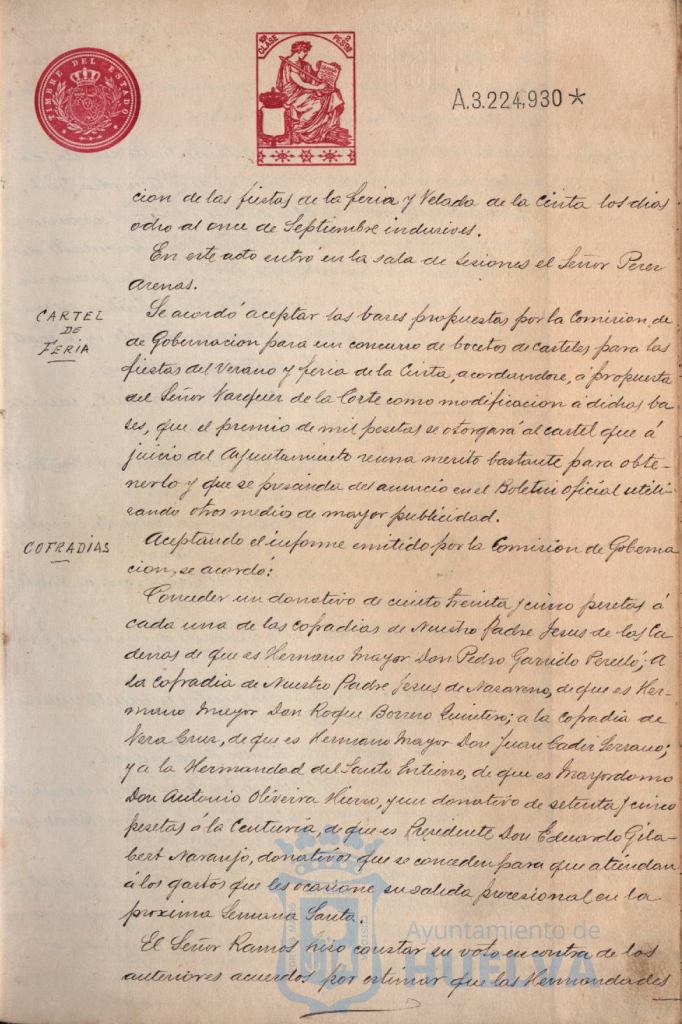 TIMBRE DEL ESTADO
10ª CLASE 2 PESTAS
A.3.224,930*
cion de las fiestas de la feria y Velada de la Cinta los dias
ocho al once de Septiembre inclusives.
En este acto entró en la sala de sesiones el Señor Perez
Arenas.
CARTEL
DE
FERIA
Se acordó aceptar las bases propuestas por la Comision de
de Gobernacion para un concurso de bocetos de carteles para las
fiestas del Verano y feria de la Cinta, acordandose, á propuesta
del Señor Vazquez de la Corte como modificacion á dichas ba
ses, que el premio de mil pesetas se otorgará al cartel que á
juicio del Ayuntamiento reuna merito bastante para obte-
nerlo y que se prescinda del anuncio en el Boletin Oficial utili-
zando otros medios de mayor publicidad.
COFRADIAS
Aceptando el informe emitido por la Comision de Goberna
cion, se acordó:
Conceder un donativo de ciento treinta y cinco pesetas á
cada una de las cofradias de Nuestro Padre Jesus de las Ca
denas de que es Hermano Mayor Don Pedro Garrido Perelló; A
la cofradia de Nuestro Padre Jesus de Nazareno, de que es Her-
mano Mayor Don Roque Borrero Quintero; a la cofradia de
Vera Cruz, de que es Hermano Mayor Don Juan Cadiz Serrano;
y a la Hermandad del Santo Entierro, de que es Mayordomo
Don Antonio Oliveira Hierro, y un donativo de setenta y cinco
pesetas á la Centuria, de que es Presidente Don Eduardo Gila-
bert Naranjo, donativos que se conceden para que atiendan
á los gastos que les ocasione su salida procesional en la
proxima Semana Santa.
El Señor Ramos hizo constar su voto en contra de los
anteriores acuerdos por estimar que las Hermandades
Ayuntamiento de
HUELVA